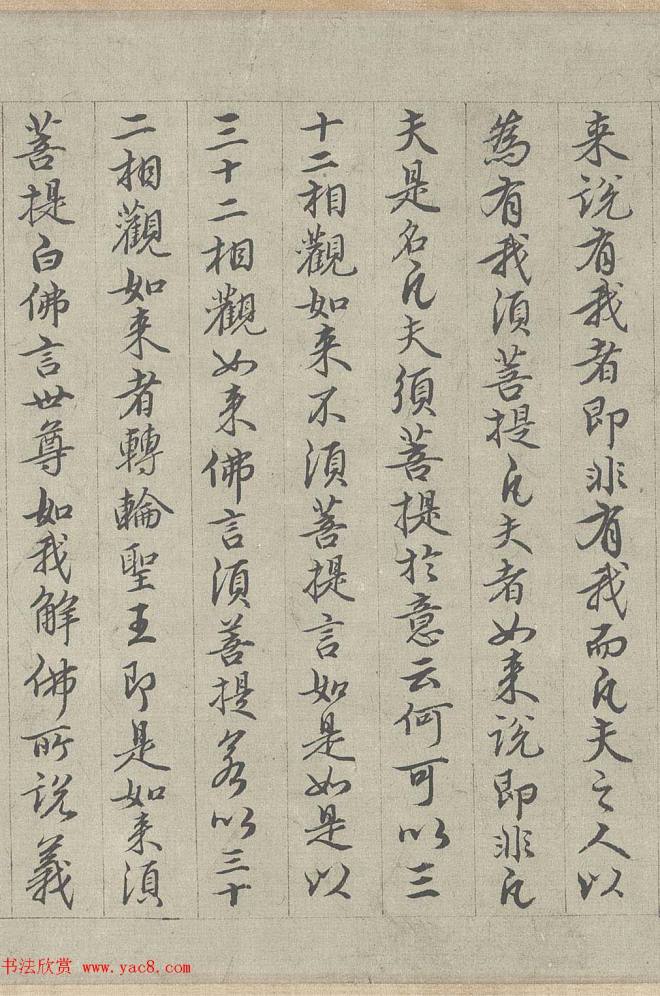 来說有我者即非有我而凡夫之人以
為有我須菩提凡夫者如来說即非凡
夫是名凡夫須菩提於意云何可以三
十二相觀如来不須菩提言如是如是以
三十二相觀如来佛言須菩提若以三十
二相觀如来者轉輪聖王即是如来須
菩提白佛言世尊如我解佛所說義
书法欣赏 www.yac8.com